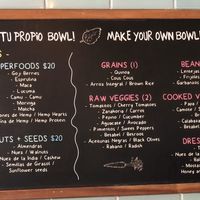 TU PROPIO BOWL!
MAKE YOUR OWN BOWL
SUPERFOODS $20
Goji Berries
Espirulina
Maca
Lucuma
Camu - Camu
Moringa
Matcha
Hemp / Hemp Hearts
de Hemp / Hemp Protein
NUTS + SEEDS $20
Almendras
Nuez / Walnuts
Nuez de la India / Cashew
Semillas de Girasol /
Sunflower seeds
GRAINS (1)
Quinoa
Cous Cous
Arroz Integral / Brown Rice
RAW VEGGIES (2)
Tomates / Cherry Tomatoes
Zanahoria / Carrots
Pepino / Cucumber
Aguacate / Avocado
Pimientos / Sweet Peppers
Betabel / Beetroot
Aceitunas Negras / Black Olives
Rabano / Radish
BEAN
Lentejas
Frijoles
Garbanzo
COOKED V
Papa
DRES